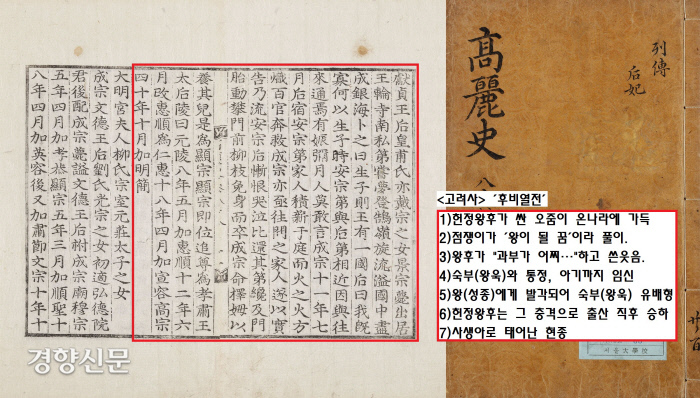 獻貞王后皇甫氏亦戴宗之女景宗薨出居
王輪寺南私第嘗夢登鵠嶺旋流溢國中盡
成銀海卜之曰生子則王有一國后曰我旣
寡何以生子時安宗第與后第相近因與往
來通焉有娠彌月人莫敢言成宗十一年七
月后宿安宗第家人積薪于庭而火之火方
熾百官奔救成宗亦亟往問之家人遂以實
告乃流安宗后慚恨哭泣比還其第纔及門
胎動攀門前柳枝免身而卒成宗命擇姆以
養其兒是爲顯宗顯宗卽位追尊爲孝肅王
太后陵曰元陵八年五月加惠順十二年六
月改惠順爲仁惠十八年四月加宣容高宗
四十年十月加明簡
大明宮夫人柳氏宗室元莊太子之女
成宗文德王后劉氏光宗之女初適弘德院
君後配成宗薨諡文德王后祔成宗廟穆宗
五年四月加孝恭顯宗五年三月加順聖十
八年四月加英容後又加肅節文宗十年十
列傳 后妃
高麗史 八
<고려사> '후비열전'
1)헌정왕후가 싼 오줌이 온나라에 가득
2)점쟁이가 '왕이 될 꿈'이라 풀이.
3)왕후가 "과부가 어찌…"하고 쓴웃음.
4)숙부(왕욱)와 통정, 아기까지 임신
5)왕(성종)에게 발각되어 숙부(왕욱) 유배형
6)헌정왕후는 그 충격으로 출산 직후 승하
7)사생아로 태어난 현종
경향신문